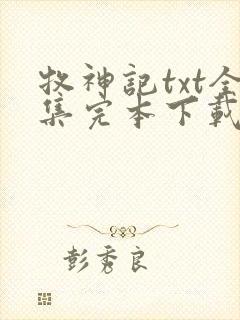 牧神記txt全
集完本下載
彭秀良